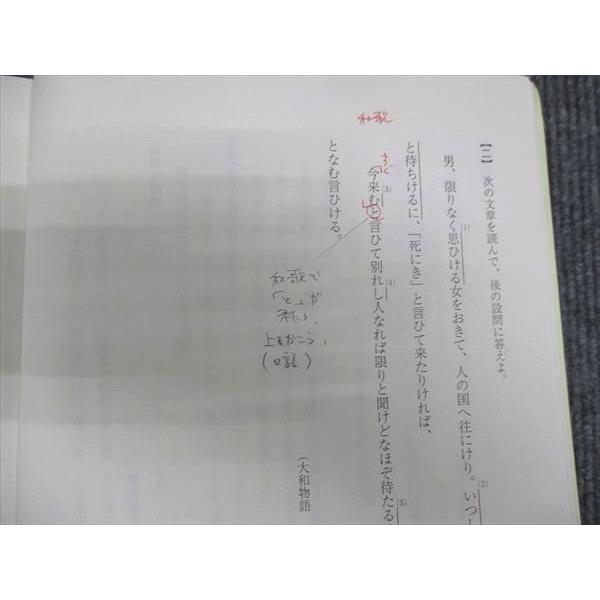 【二】 次の文章を読んで、後の設問に答えよ。
男、限りなく思ひける女をおきて、人の国へ往にけり。いつ
(1)
(2)
と待ちけるに、「死にき」と言ひて来たりければ、
和歌
今来むと言ひて別れし人なれば限りと聞けどなほぞ待たる
(3)
(4)
(5)
となむ言ひける。
和歌で
「と」が
上をかこう、
(大和物語